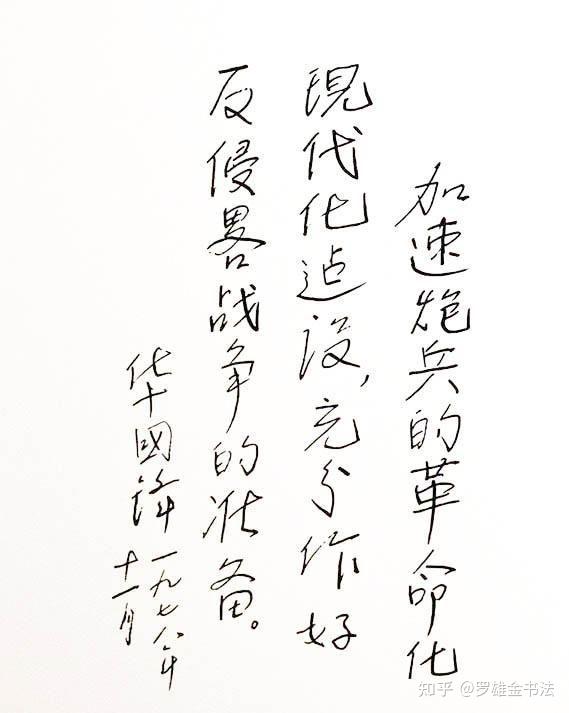 加速炮兵的革命化
現代化迠设，充分作好
反侵畧战争的准备。
华國鋒 一九七八年
十一月
知乎 @罗雄金书法